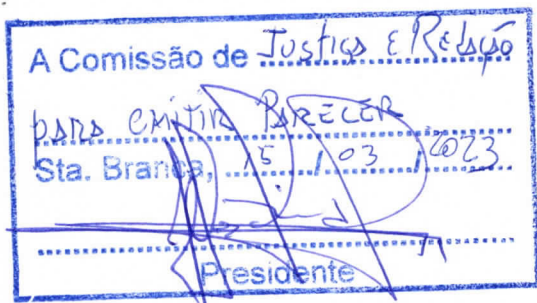 A Comissão de Justiça e Redação
para emitir PARECER
Sta. Branca, 15 / 03 / 2023
Presidente